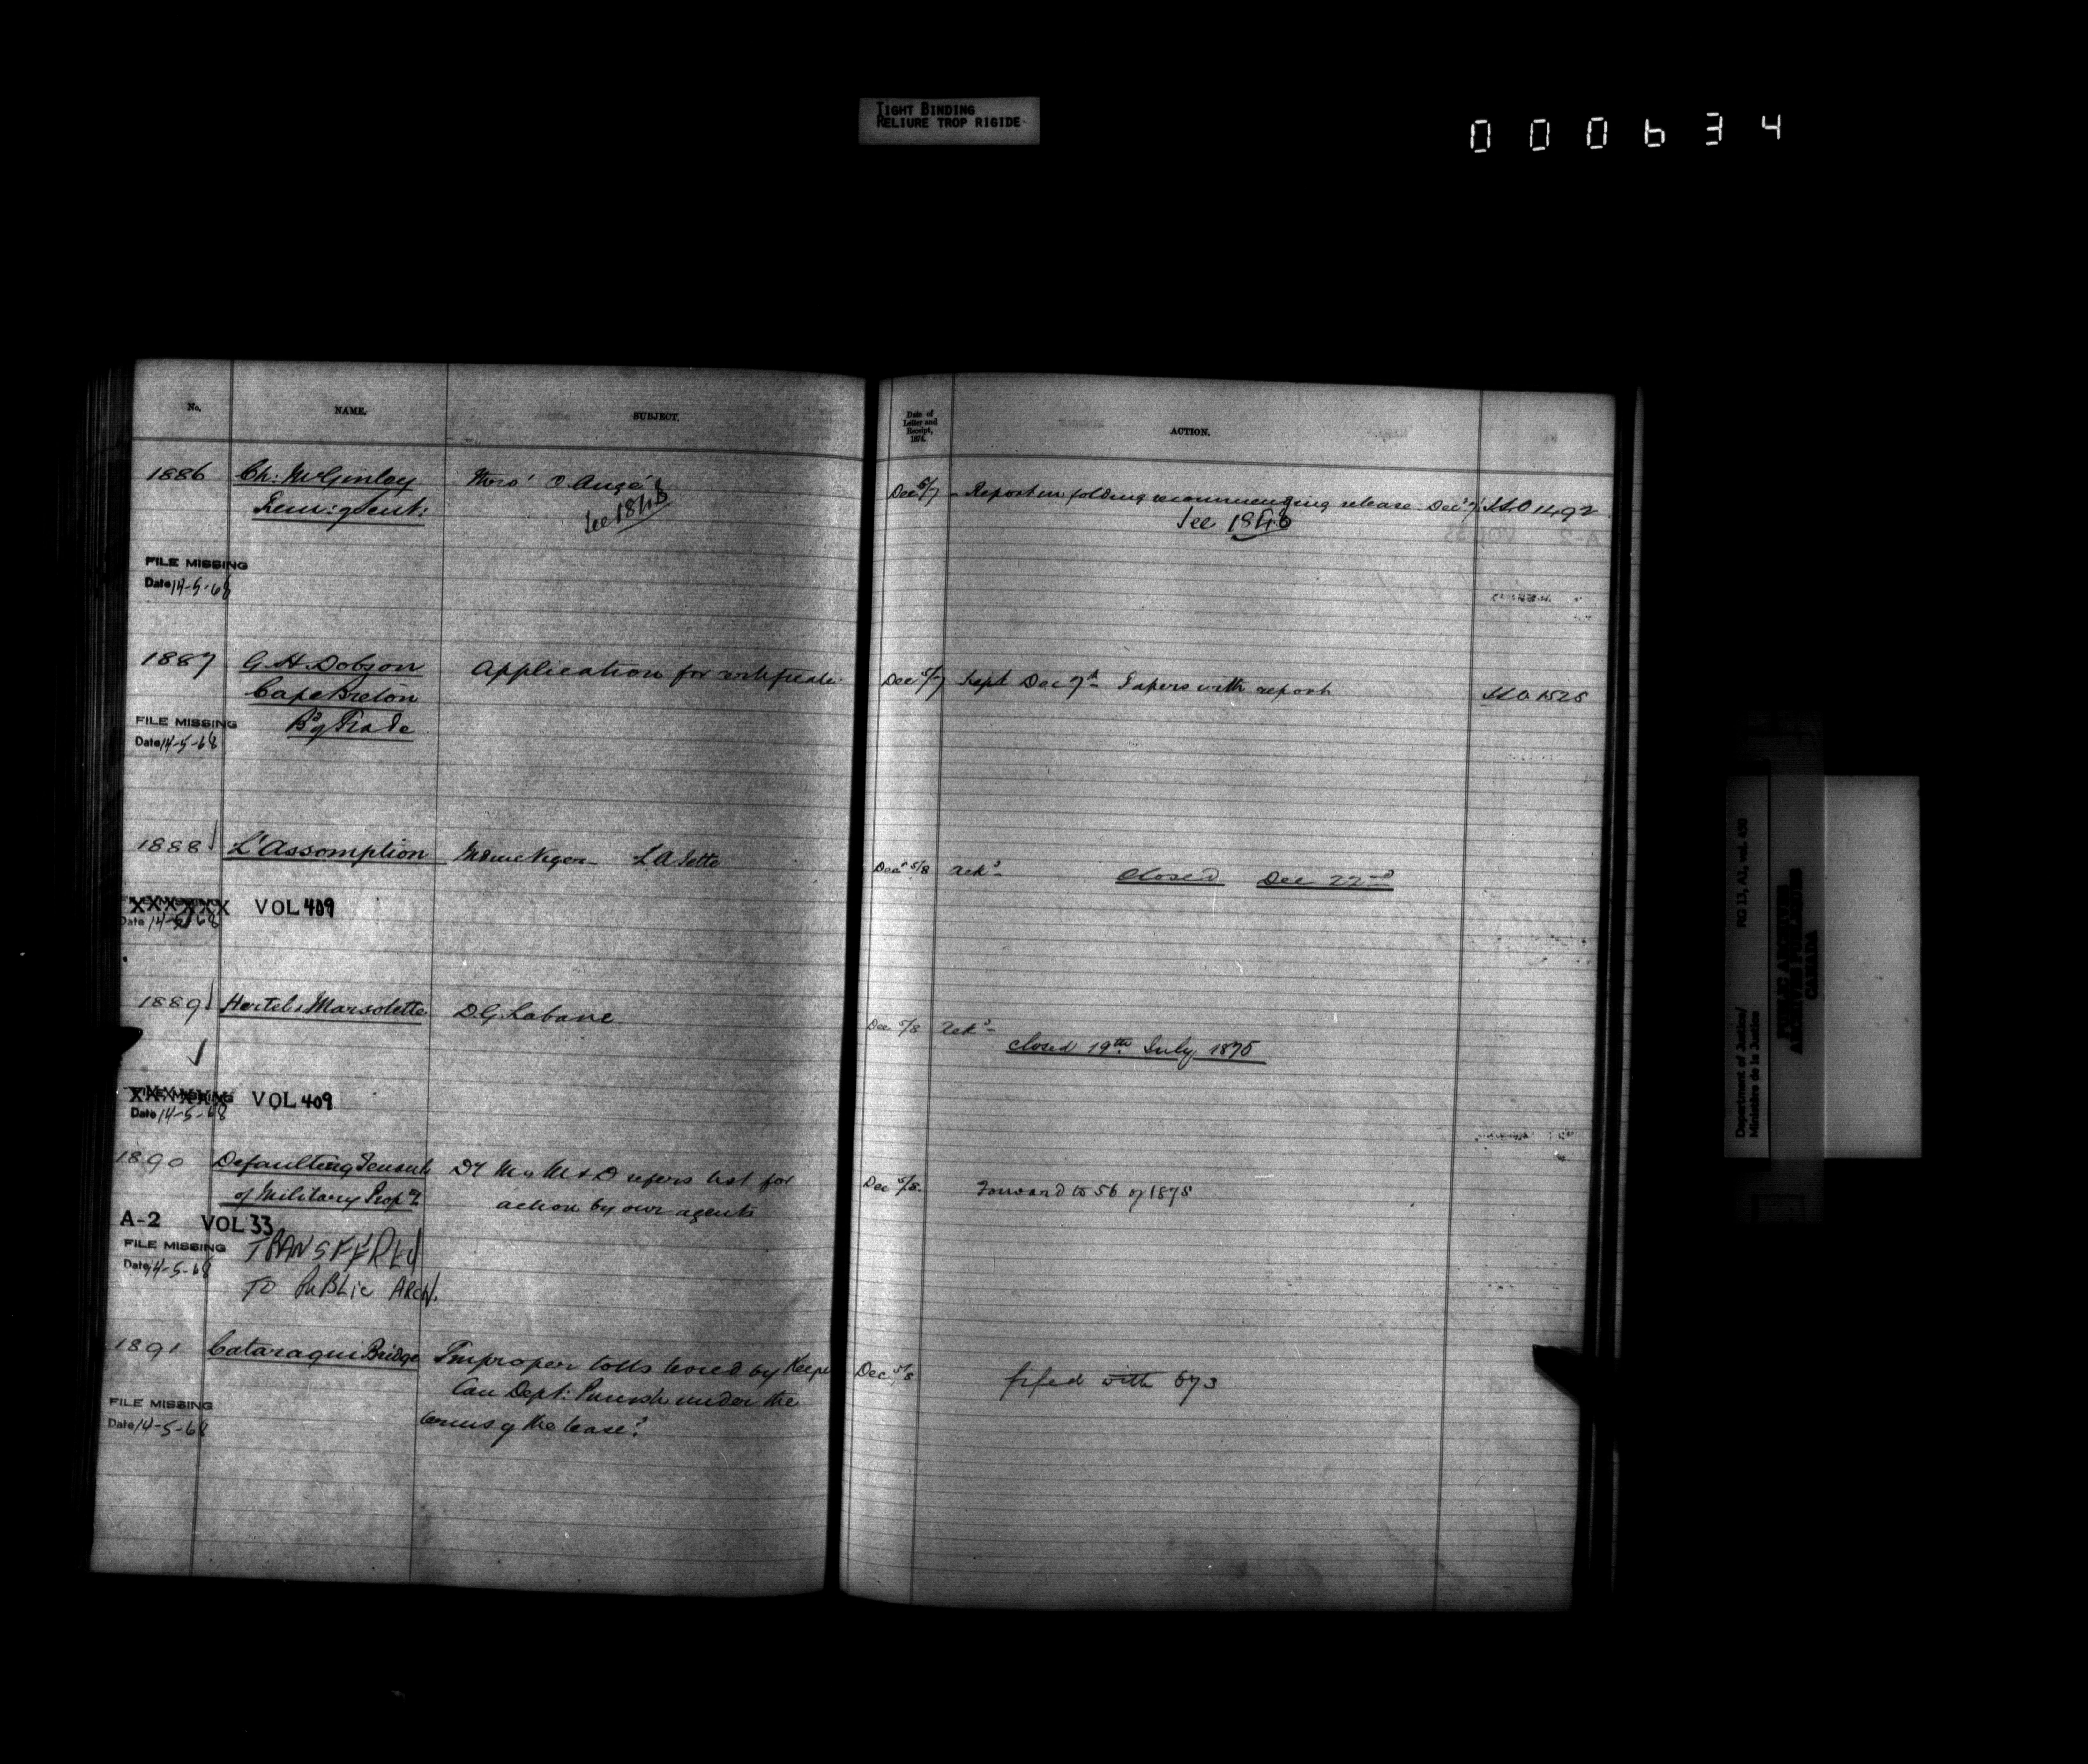 TIGHT BINDING
RELIURE TROP RIGIDE
000634
No. NAME. SUBJECT.
1886 Ch: McGinley
See 1846
FILE MISSING
Date 14-5-68
1887 G. H. Dobson Application for certificate
Cape Breton
Bd of Trade
FILE MISSING
Date 14-5-68
1888 L'Assomption
FILE MISSING VOL 409
Date 14-5-68
1889 Hertel & Marsolette D. G. Labane
FILE MISSING VOL 409
Date 14-5-68
1890 Defaulting Tenants Dy M of M & D refers list for
of Military Propy action by our agents
A-2 VOL 33
FILE MISSING TRANSFERED
Date 14-5-68
TO PUBLIC ARCH.
1891 Cataraqui Bridge Improper tolls levied by Keeper
Can Dept: Punish under the
terms of the lease?
FILE MISSING
Date 14-5-68
Date of
Letter and
Receipt,
1874.
ACTION.
Dec 5/7 recommending release Dec 7
See 1846
Dec 5/7 Rept Dec 7th Papers with report 1525
Dec 5/8 Ackd Closed Dec 22nd
Dec 5/8 Ackd
closed 19th July 1875
Dec 5/8 Forward to 56 of 1875
Dec 5/8 filed with 673
Department of Justice/ RG 13, A1, vol. 430
Ministère de la Justice
PUBLIC ARCHIVES
ARCHIVES PUBLIQUES
CANADA